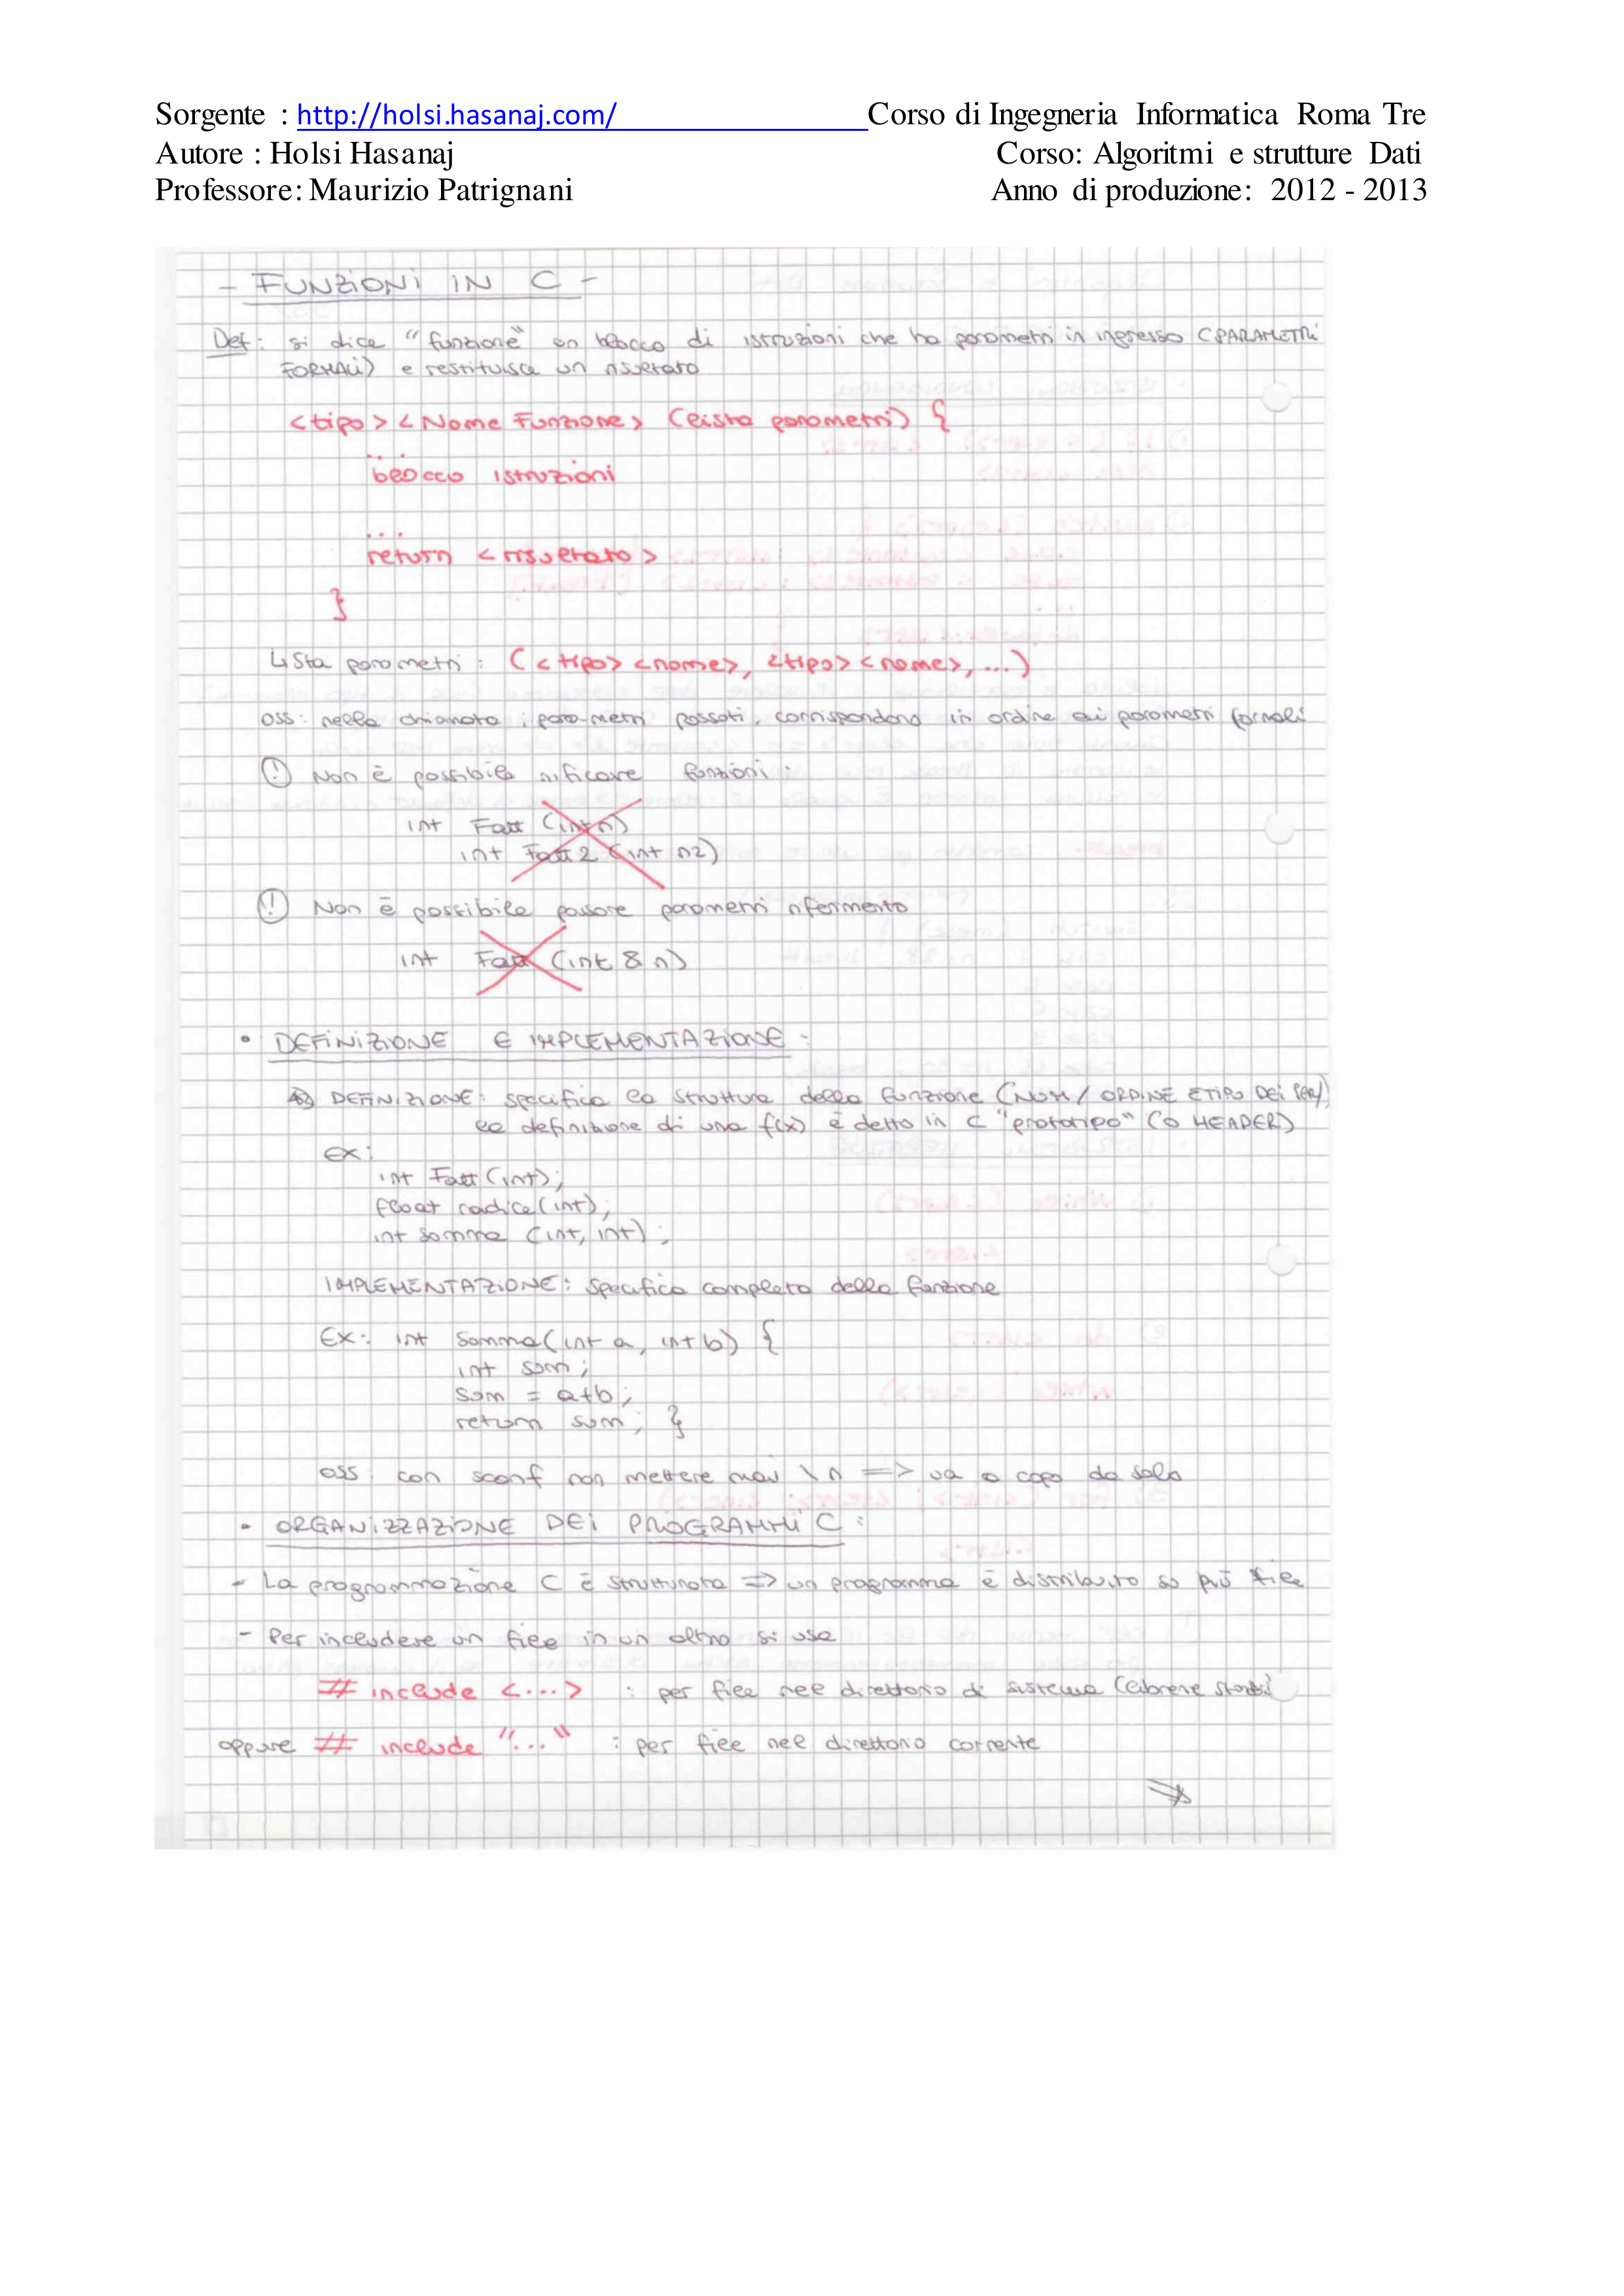 Sorgente : http://holsi.hasanaj.com/ Corso di Ingegneria Informatica Roma Tre
Autore : Holsi Hasanaj Corso: Algoritmi e strutture Dati
Professore: Maurizio Patrignani Anno di produzione: 2012 - 2013
- FUNZIONI IN C -
Def: si dice "funzione" un blocco di istruzioni che ha parametri in ingresso (PARAMETRI
FORMALI) e restituisce un risultato
<tipo> <Nome Funzione> (lista parametri) {
...
blocco istruzioni
...
return <risultato>
}
Lista parametri: (<tipo> <nome>, <tipo> <nome>, ...)
oss: nella chiamata i parametri passati, corrispondono in ordine ai parametri formali
! Non è possibile nificare funzioni:
int Fatt (int n)
int Fatt2 (int n2)
! Non è possibile passare parametri riferimento
int Fatt (int & n)
• DEFINIZIONE E IMPLEMENTAZIONE:
DEFINIZIONE: specifica la struttura della funzione (NUM / ORDINE E TIPO DEI PAR)
la definizione di una f(x) è detto in C "prototipo" (O HEADER)
Ex:
int Fatt (int);
float radice (int);
int somma (int, int);
IMPLEMENTAZIONE: specifica completa della funzione
Ex: int somma (int a, int b) {
int som;
som = a+b;
return som; }
oss: con scanf non mettere mai \n => va a capo da solo
• ORGANIZZAZIONE DEI PROGRAMMI C:
- La programmazione C è strutturata => un programma è distribuito su più file
- Per includere un file in un altro si usa
# include <...> : per file nel direttorio di sistema (librerie standard)
oppure # include "..." : per file nel direttorio corrente